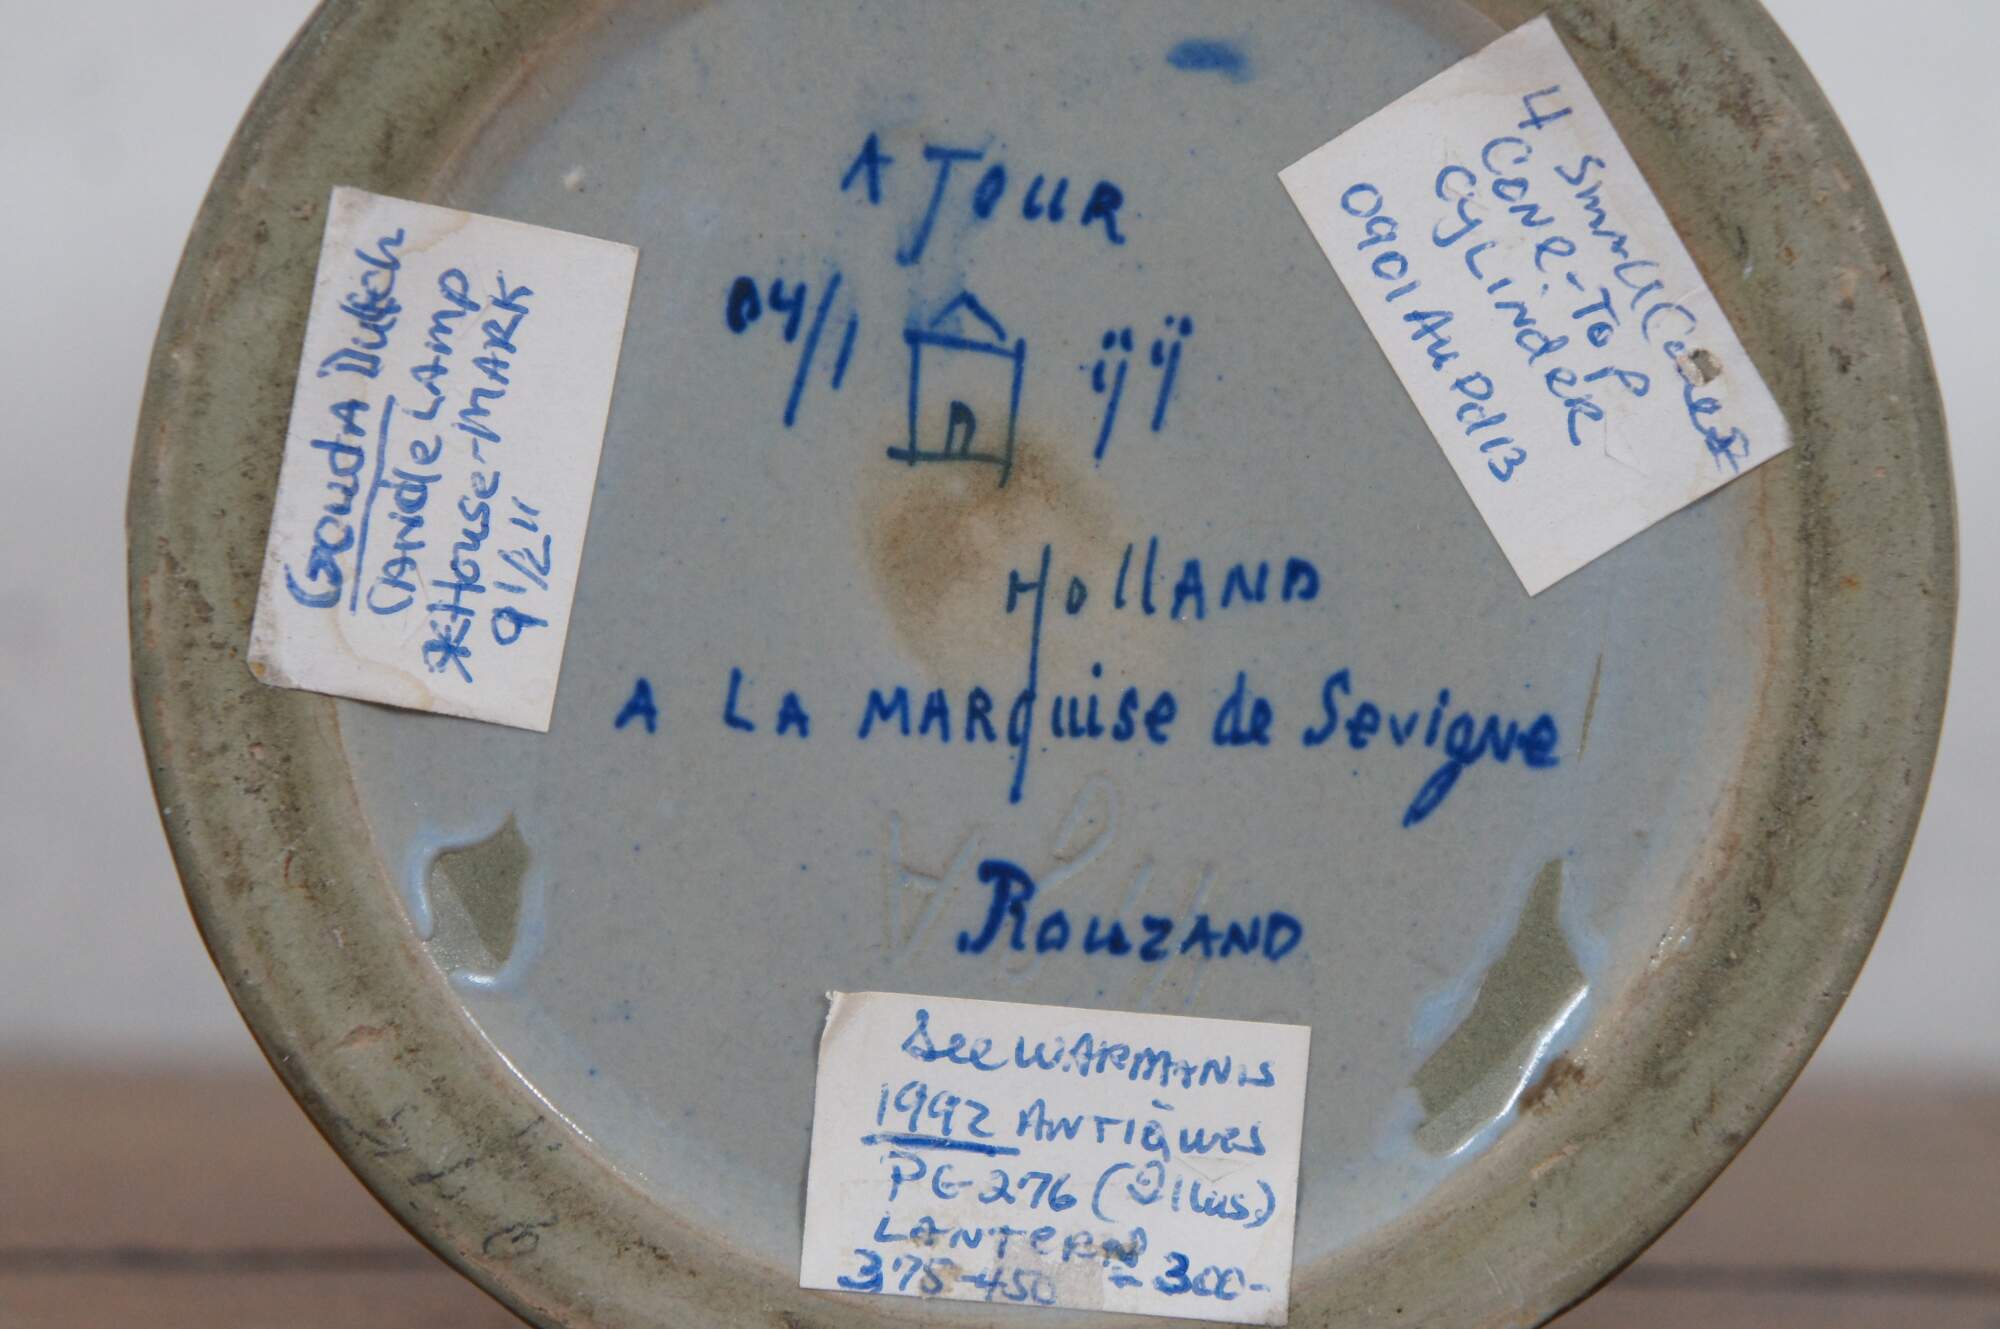 A JOUR
04/1 ÿ ÿ
HollAND
A LA MARquise de Sevigne
RouzAND
GoudA Dutch
CANdle LAmp
House-MARK
9 1/2"
4 Small
CONE-Top
CyLiNdER
0901
See WARMANs
1992 ANTiques
PG-276 (Illus)
LANTERN
375-450 = 300-